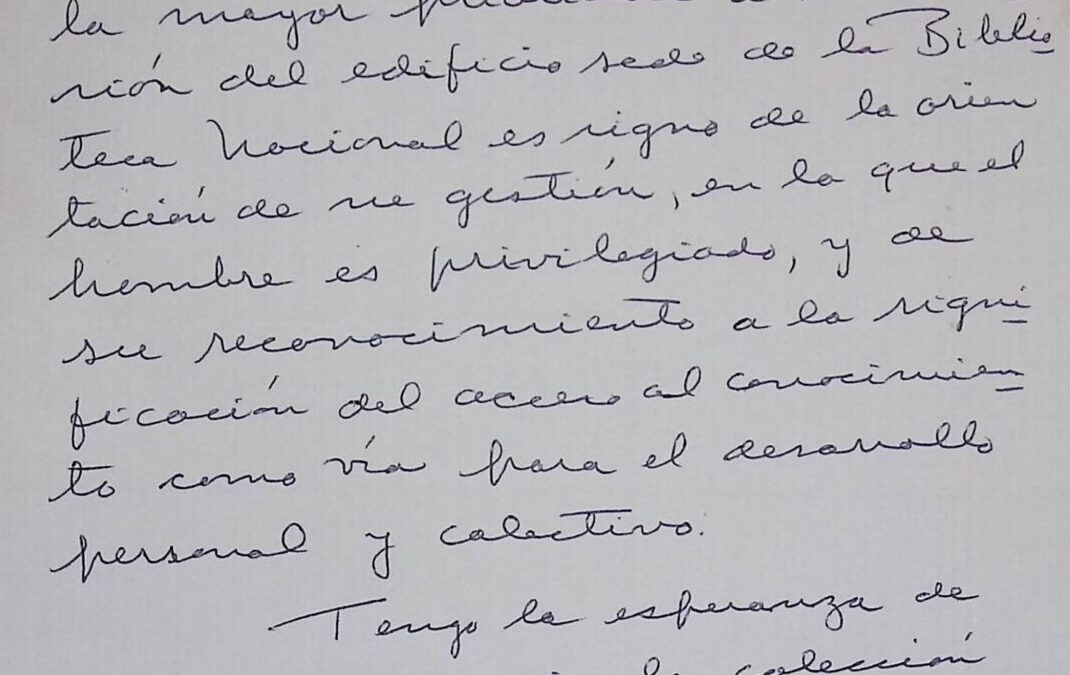 la mayor
sión del edificio sede de la Biblio
teca Nacional es signo de la orien
tación de su gestión, en la que el
hombre es privilegiado, y de
su reconocimiento a la signi
ficación del acceso al conocimien
to como vía para el desarrollo
personal y colectivo.
Tengo la esperanza de
la colección